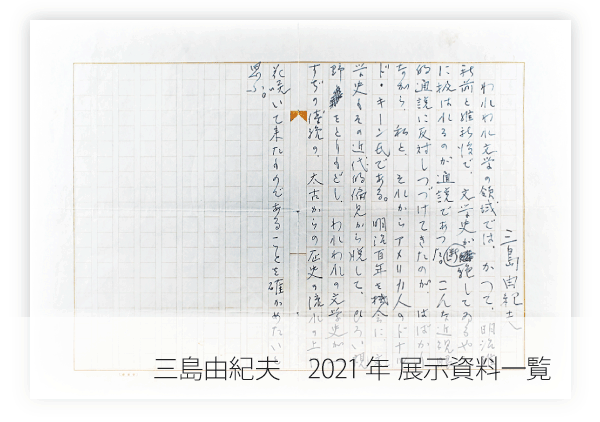 三島由紀夫
われわれ文学の領域では、かつて、明治維
新前と維新後で、文学史が断絶してゐるやう
に扱はれるのが通説であつた。こんな近視
的通説に反対しつづけてきたのが、はばかり
ながら、私と、それからアメリカ人のドナル
ド・キーン氏である。明治百年を機会に、
学史もその近代的偏見から脱して、ひろい視
野をとりもどし、われわれの文学史が
すぢの伝統の、太古からの歴史の流れの上
花咲いて来たものであることを確かめたい
思ふ。
三島由紀夫 2021年 展示資料一覧